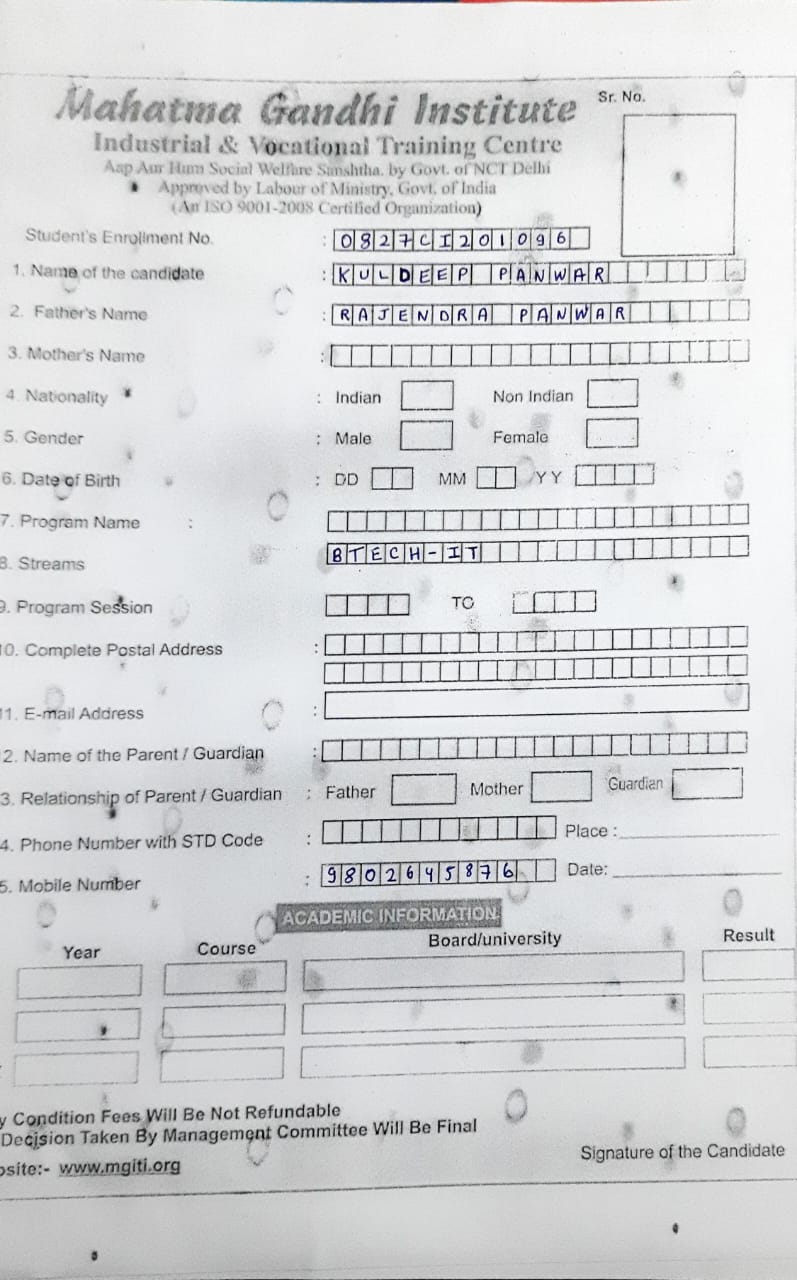 Mahatma Gandhi Institute
Sr. No.
Industrial & Vocational Training Centre
Aap Aur Hum Social Welfare Sanshtha. by Govt. of NCT Delhi
Approved by Labour of Ministry, Govt. of India
(An ISO 9001-2008 Certified Organization)
Student's Enrollment No. : 0827CI201096
1. Name of the candidate : KULDEEP PANWAR
2. Father's Name : RAJENDRA PANWAR
3. Mother's Name :
4. Nationality : Indian Non Indian
5. Gender : Male Female
6. Date of Birth : DD MM /YY
7. Program Name :
8. Streams BTECH-IT
9. Program Session TO
10. Complete Postal Address :
11. E-mail Address :
2. Name of the Parent / Guardian :
3. Relationship of Parent / Guardian : Father Mother Guardian
4. Phone Number with STD Code : Place :
5. Mobile Number : 9802645876 Date:
ACADEMIC INFORMATION
Year Course Board/university Result
y Condition Fees Will Be Not Refundable
Decision Taken By Management Committee Will Be Final
bsite:- www.mgiti.org
Signature of the Candidate